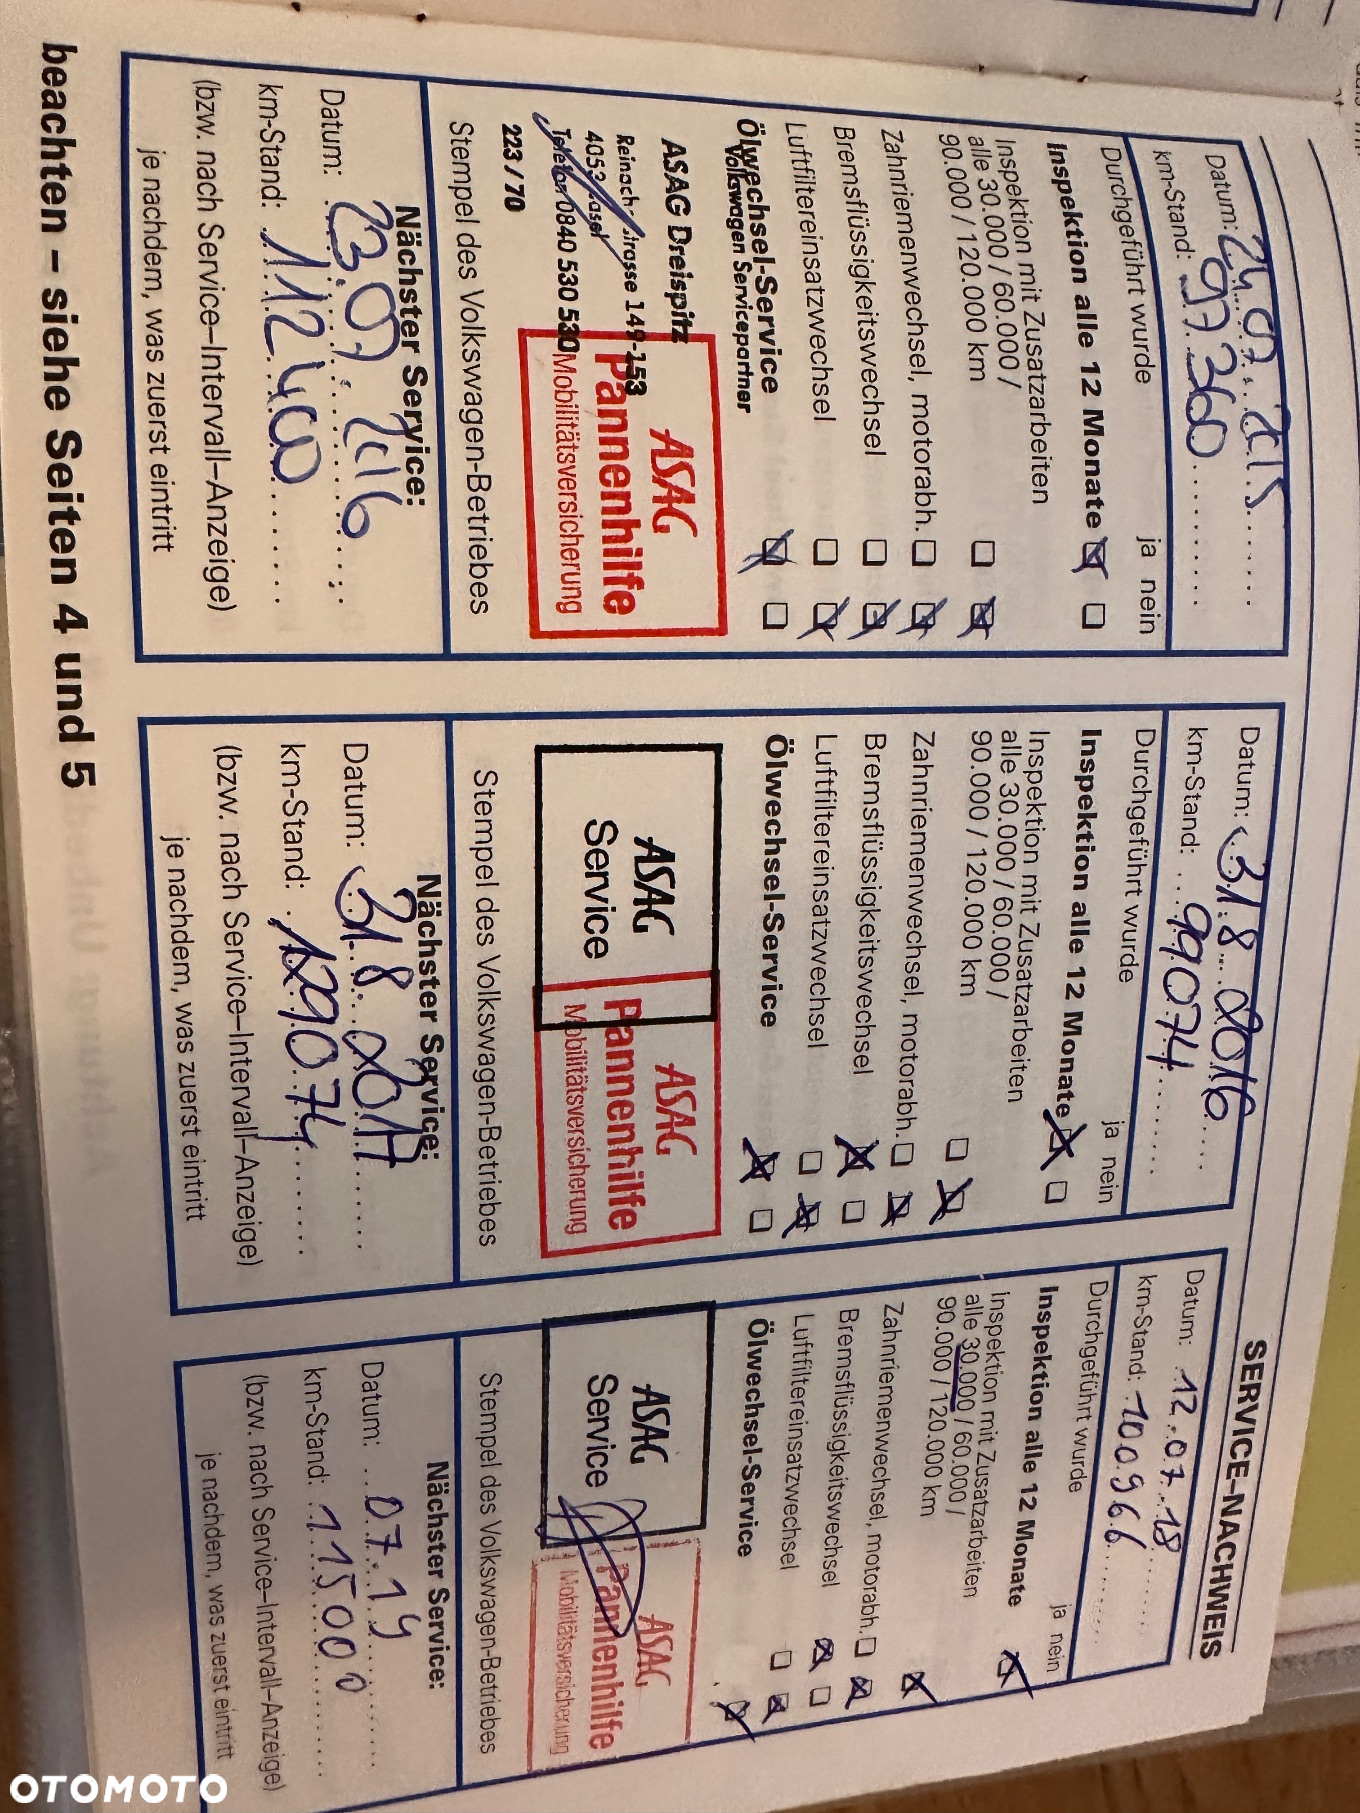 SERVICE-NACHWEIS
Datum: 24.07.2015
km-Stand: 97360
Durchgeführt wurde
ja nein
Inspektion alle 12 Monate
Inspektion mit Zusatzarbeiten
alle 30.000 / 60.000 /
90.000 / 120.000 km
Zahnriemenwechsel, motorabh.
Bremsflüssigkeitswechsel
Luftfiltereinsatzwechsel
Ölwechsel-Service
Volkswagen Servicepartner
ASAG Dreispitz
Reinach-strasse 149-153
4053 Basel
Telefon 0840 530 530
223 / 70
ASAG
Pannenhilfe
Mobilitätsversicherung
Stempel des Volkswagen-Betriebes
Nächster Service:
Datum: 23.07.2016
km-Stand: 112400
(bzw. nach Service–Intervall–Anzeige)
je nachdem, was zuerst eintritt
Datum: 31.8.2016
km-Stand: 99074
Durchgeführt wurde
ja nein
Inspektion alle 12 Monate
Inspektion mit Zusatzarbeiten
alle 30.000 / 60.000 /
90.000 / 120.000 km
Zahnriemenwechsel, motorabh.
Bremsflüssigkeitswechsel
Luftfiltereinsatzwechsel
Ölwechsel-Service
ASAG
Service
ASAG
Pannenhilfe
Mobilitätsversicherung
Stempel des Volkswagen-Betriebes
Nächster Service:
Datum: 31.8.2017
km-Stand: 129074
(bzw. nach Service–Intervall–Anzeige)
je nachdem, was zuerst eintritt
Datum: 12.07.18
km-Stand: 100966
Durchgeführt wurde
ja nein
Inspektion alle 12 Monate
Inspektion mit Zusatzarbeiten
alle 30.000 / 60.000 /
90.000 / 120.000 km
Zahnriemenwechsel, motorabh.
Bremsflüssigkeitswechsel
Luftfiltereinsatzwechsel
Ölwechsel-Service
ASAG
Service
ASAG
Pannenhilfe
Mobilitätsversicherung
Stempel des Volkswagen-Betriebes
Nächster Service:
Datum: 07.19
km-Stand: 115000
(bzw. nach Service–Intervall–Anzeige)
je nachdem, was zuerst eintritt
beachten – siehe Seiten 4 und 5
OTOMOTO